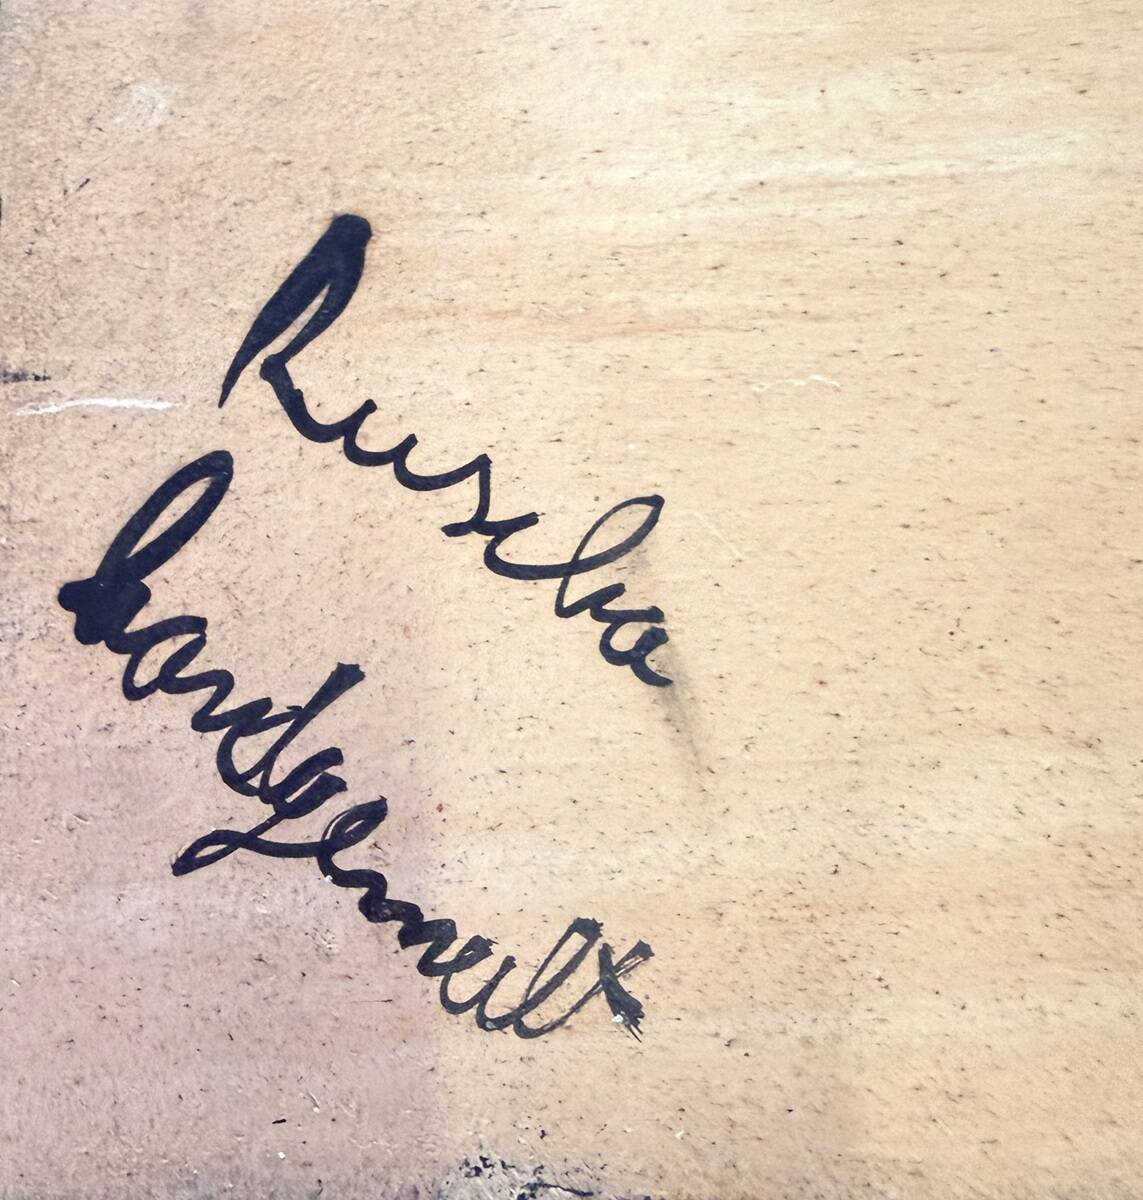 Ruscha
handgemalt